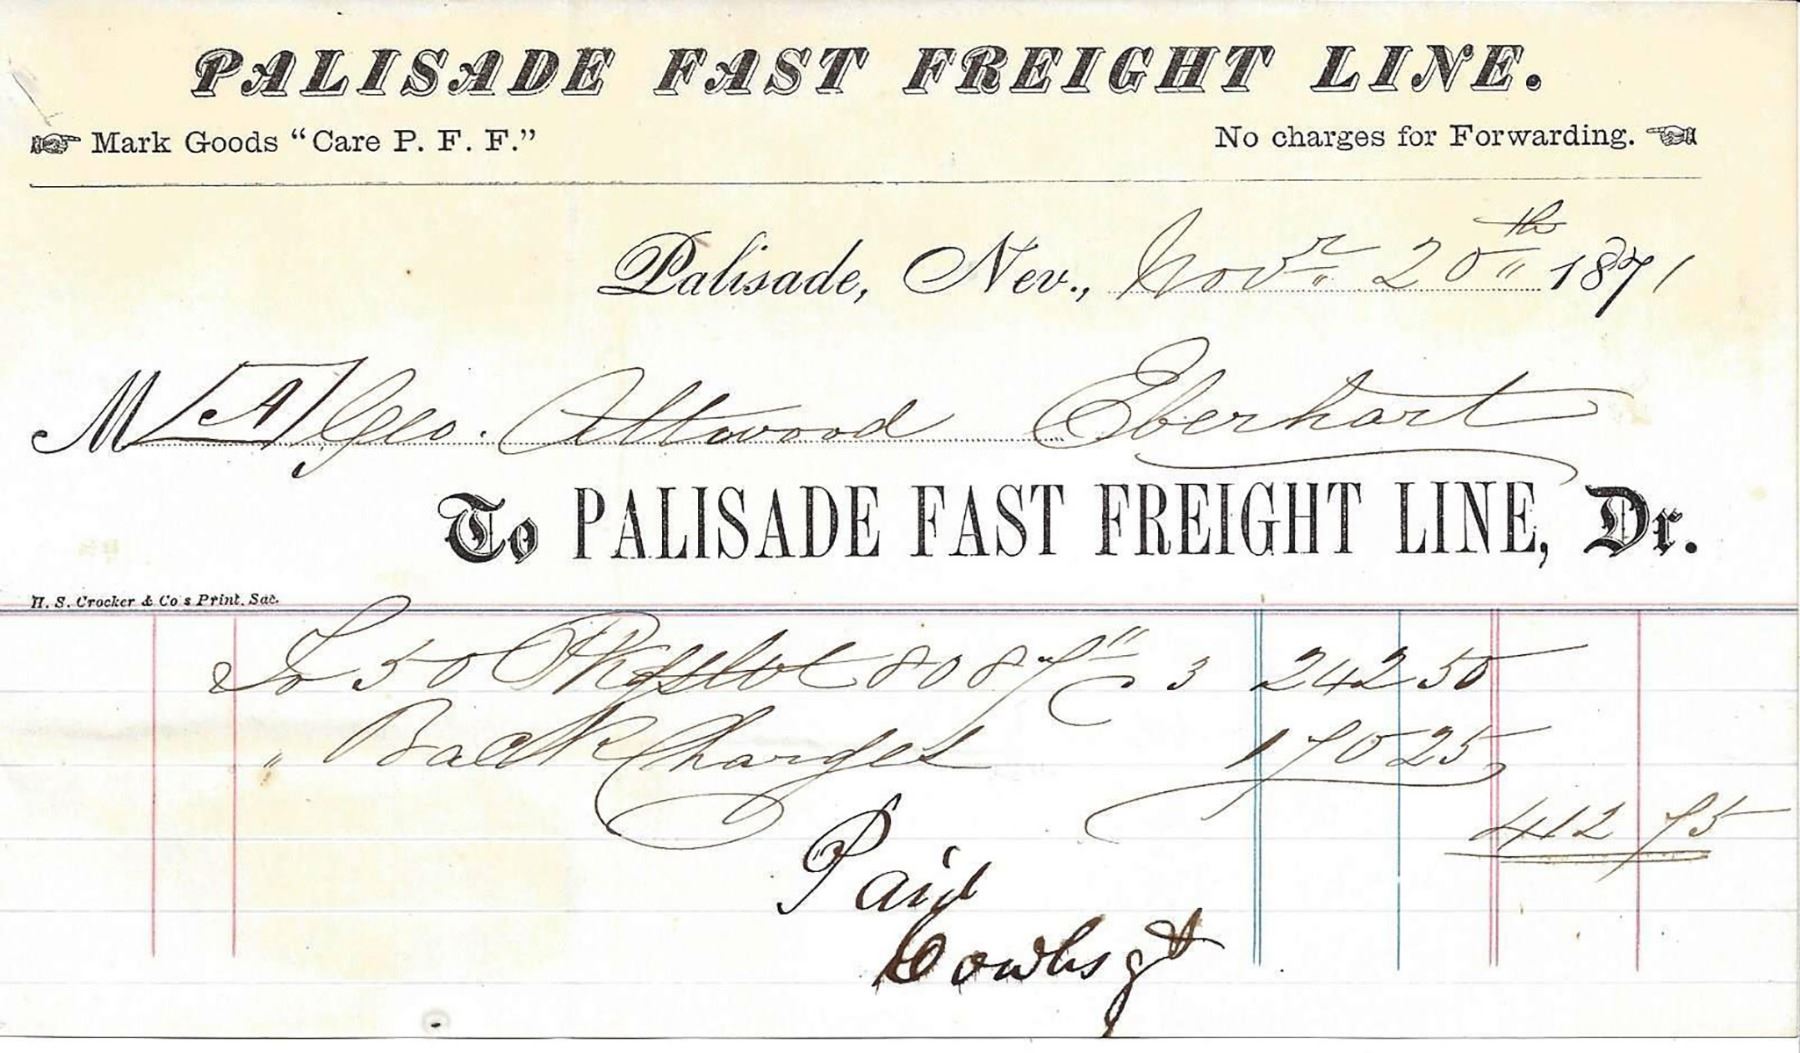 PALISADE FAST FREIGHT LINE.
Mark Goods "Care P. F. F." No charges for Forwarding.
Palisade, Nev., Novr 20th 1871
M A Geo. Attwood Eberhart
To PALISADE FAST FREIGHT LINE, Dr.
H. S. Crocker & Co s Print. Sac.
To 50 Pkgs 8087 " C 3 242 50
" Back Charges 170 25
412 75
Paid